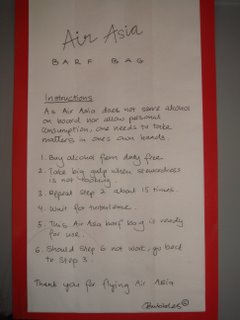 Air Asia
BARF BAG
Instructions
As Air Asia does not serve alcohol
on board nor allow personal
consumption, one needs to take
matters in ones own hands.
1. Buy alcohol from duty free
2. Take big gulp when stewardess
is not looking.
3. Repeat Step 2 about 15 times.
4. Wait for turbulence.
5. This Air Asia barf bag is ready
for use.
6. Should Step 6 not work, go back
to Step 3.
Thank you for flying Air Asia
©